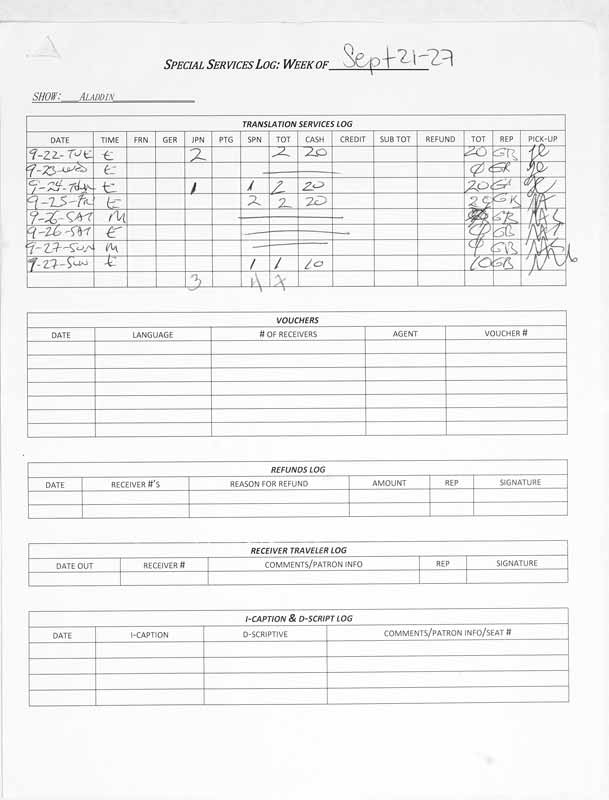 SPECIAL SERVICES LOG: WEEK OF Sept 21-27
SHOW: ALADDIN
TRANSLATION SERVICES LOG
DATE TIME FRN GER JPN PTG SPN TOT CASH CREDIT SUB TOT REFUND TOT REP PICK-UP
9-22-TUE E 2 2 20 20 GR
9-23-WED E 0 GR
9-24-THU E 1 1 2 20 20 GR
9-25-FRI E 2 2 20 20 GR
9-26-SAT M GR
9-26-SAT E 0 GB
9-27-SUN M 0 GB
9-27-SUN E 1 1 10 10 GB
3 4 7
VOUCHERS
DATE LANGUAGE # OF RECEIVERS AGENT VOUCHER #
REFUNDS LOG
DATE RECEIVER #'S REASON FOR REFUND AMOUNT REP SIGNATURE
RECEIVER TRAVELER LOG
DATE OUT RECEIVER # COMMENTS/PATRON INFO REP SIGNATURE
I-CAPTION & D-SCRIPT LOG
DATE I-CAPTION D-SCRIPTIVE COMMENTS/PATRON INFO/SEAT #